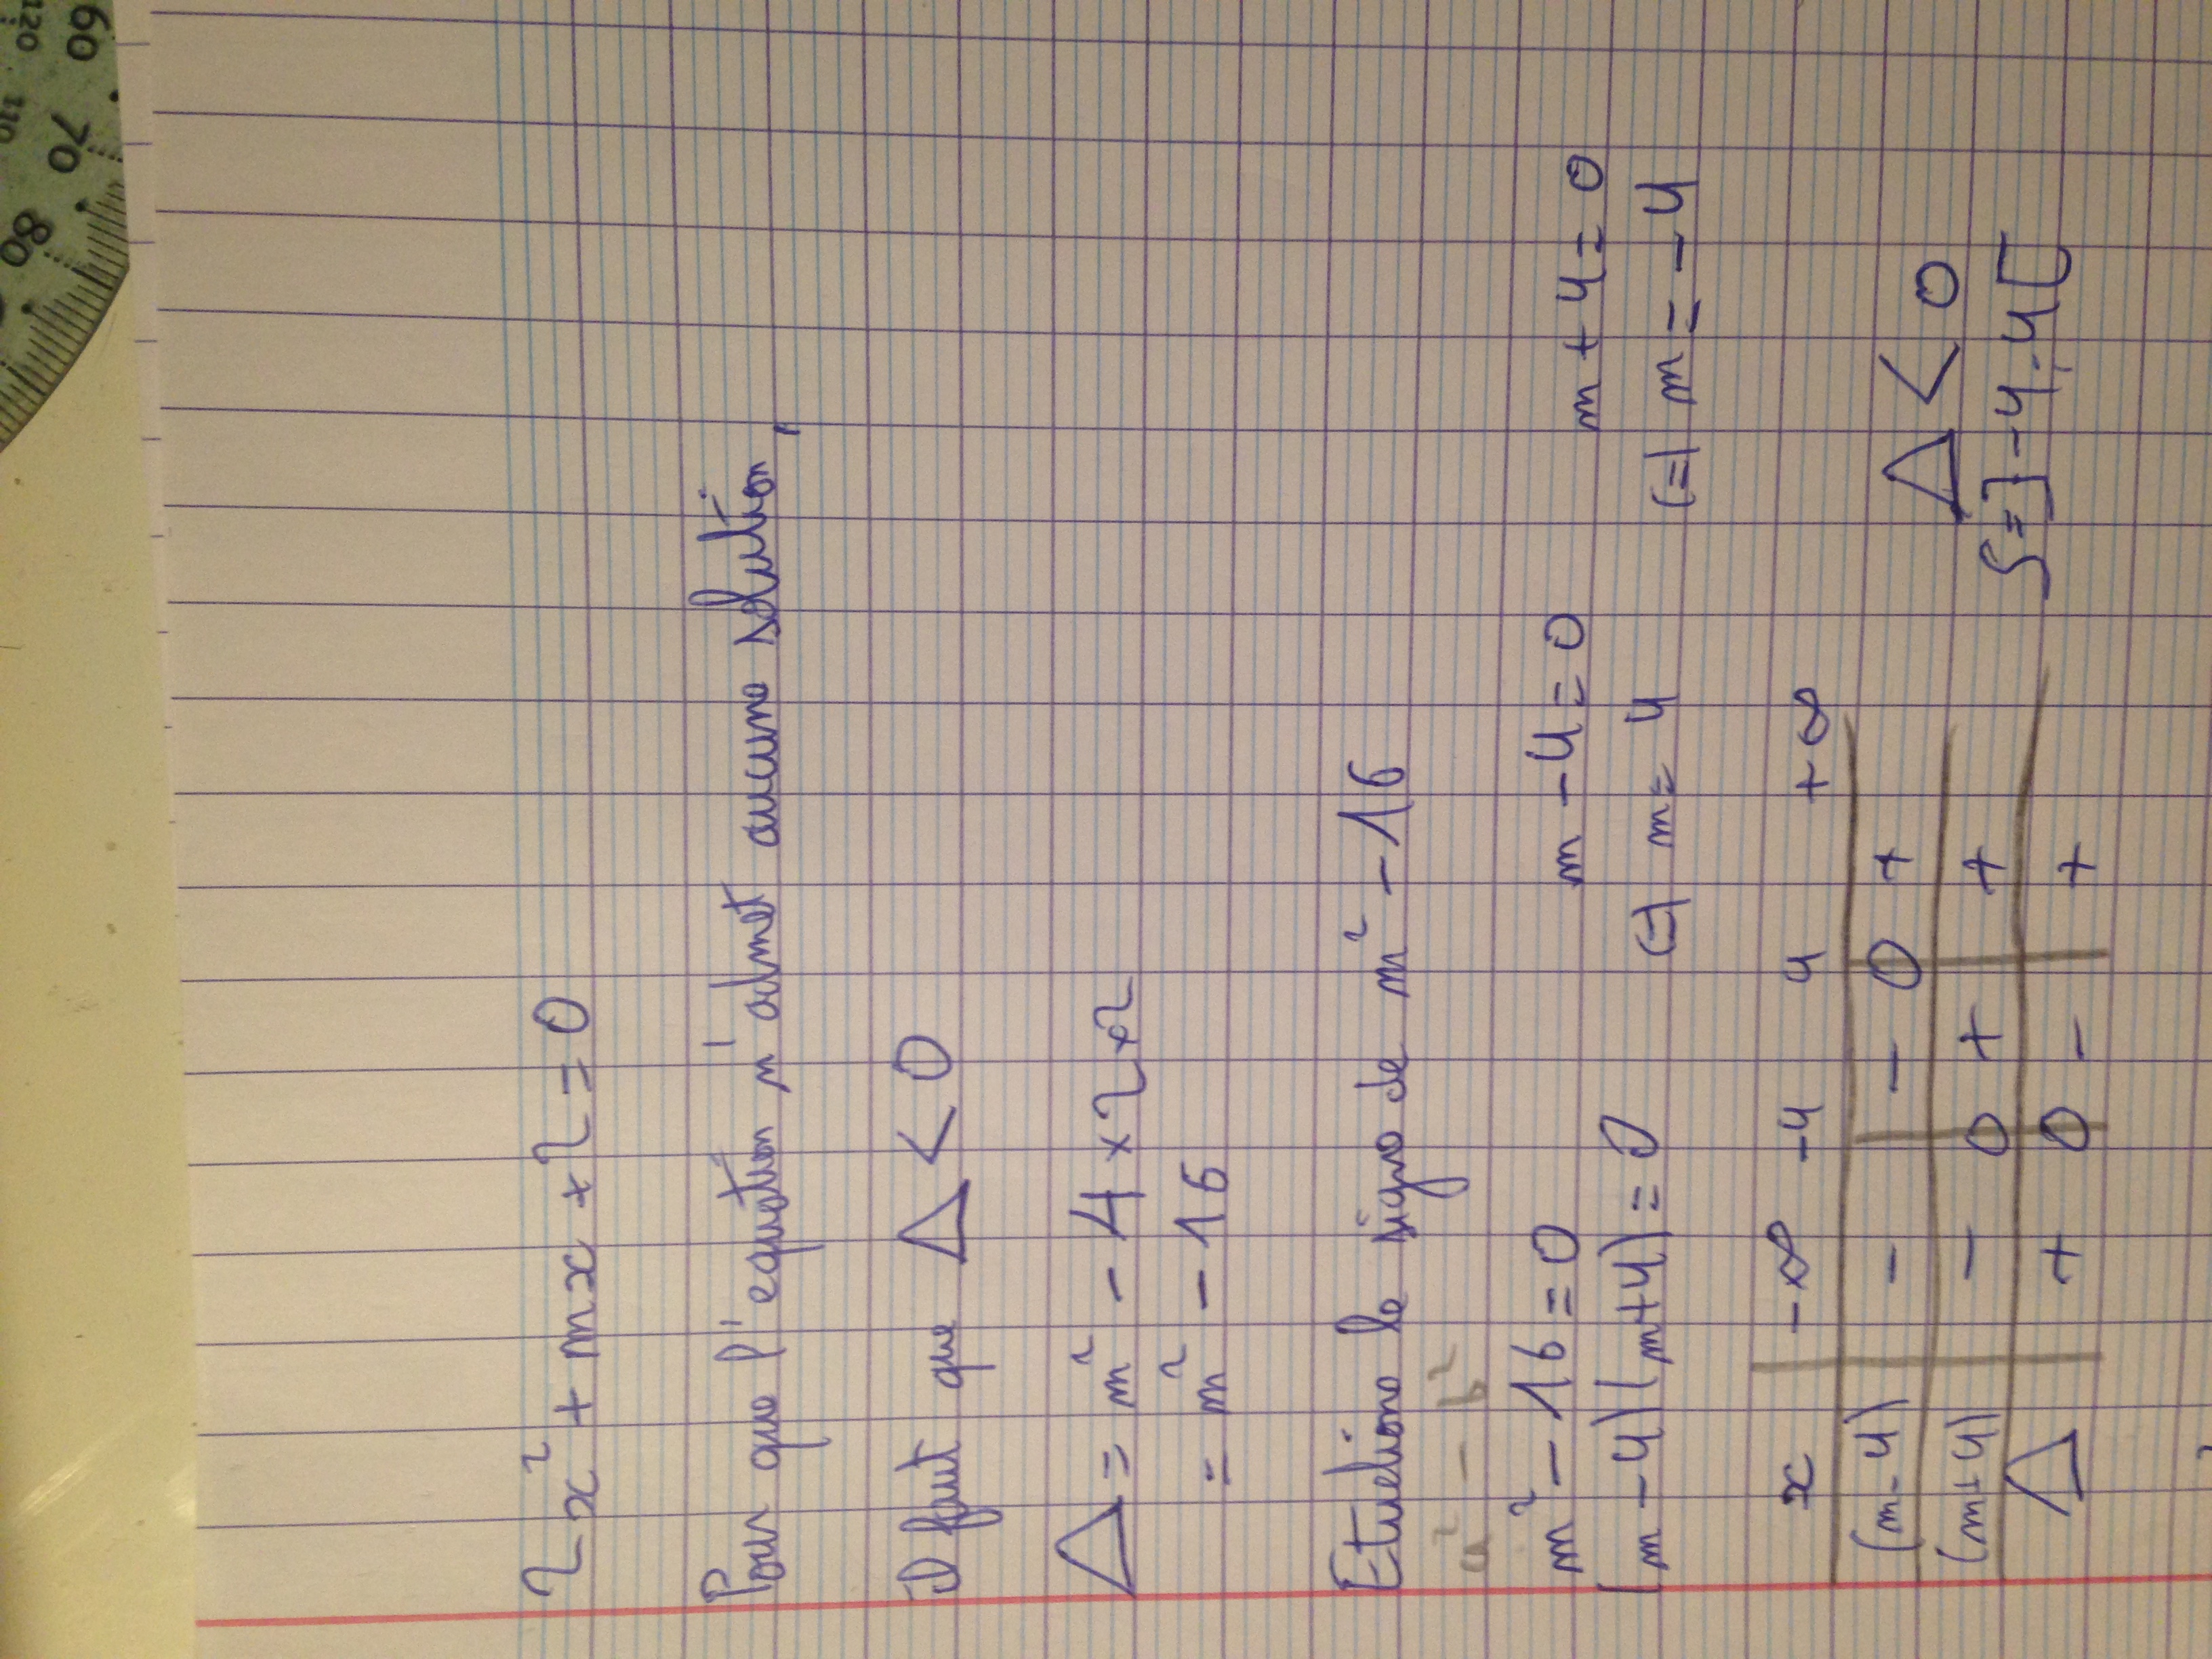 80 70 60 110 120
2x² + mx + 2 = 0
Pour que l'equation n'admet aucune solution,
il faut que Δ < 0
Δ = m² - 4 × 2 × 2
= m² - 16
Etudions le signe de m² - 16
a² - b²
m² - 16 = 0 m - 4 = 0 m + 4 = 0
(m - 4)(m + 4) = 0 (=) m = 4 (=) m = -4
x -∞ -4 4 +∞
(m - 4) - - 0 +
(m + 4) - 0 + +
Δ + 0 - +
Δ < 0
S = ]-4;4[